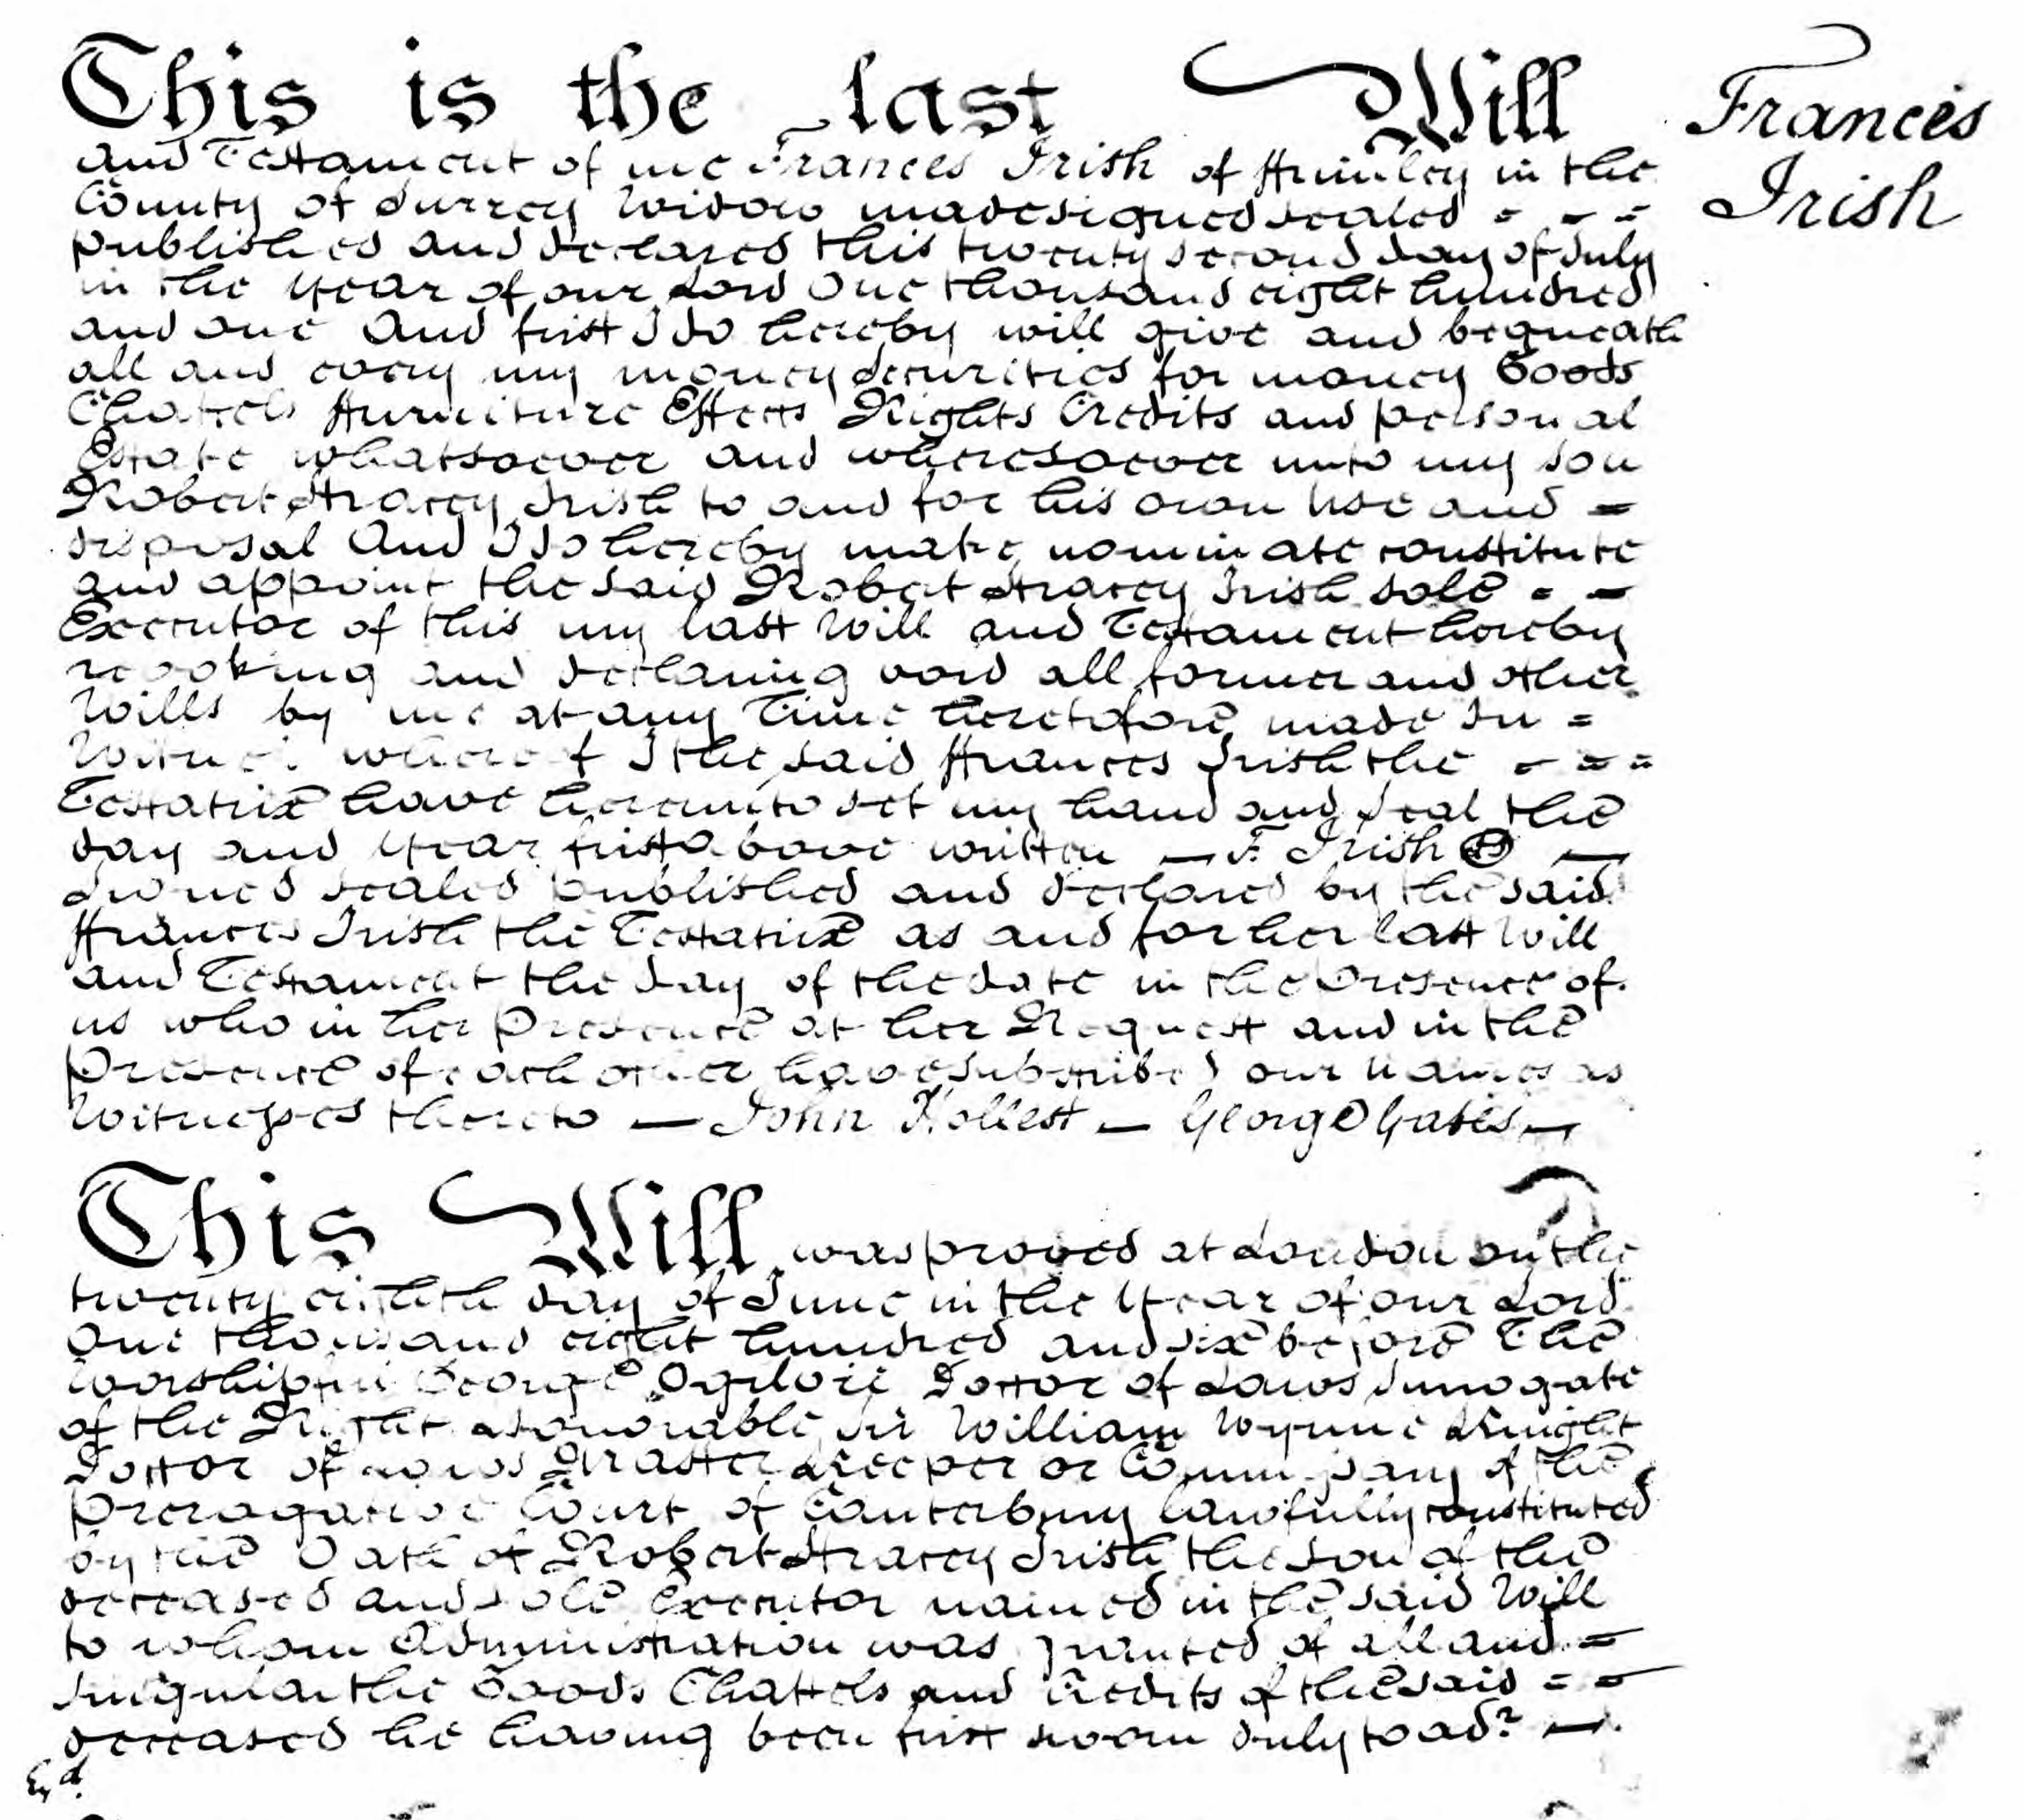 This is the last Will
Frances
Irish
and Testament of me Frances Irish of Frimley in the
County of Surrey Widow made signed sealed = = =
published and declared this twenty second day of July
in the Year of our Lord One thousand eight hundred
and one And first I do hereby will give and bequeath
all and every my money Securities for money Goods
Chattels Furniture Effects Rights Credits and personal
Estate whatsoever and wheresoever unto my Son
Robert Tracey Irish to and for his own Use and =
disposal And I do hereby make nominate constitute
and appoint the said Robert Tracey Irish sole = =
Executor of this my last Will and Testament hereby
revoking and declaring void all former and other
Wills by me at any Time heretofore made In =
Witness whereof I the said Frances Irish the = = =
Testatrix have hereunto set my hand and Seal the
day and Year first above written — F. Irish —
Signed sealed published and declared by the said
Frances Irish the Testatrix as and for her last Will
and Testament the day of the date in the Presence of
us who in her Presence at her Request and in the
Presence of each other have subscribed our Names as
Witnesses thereto — John Hollest — George Gates —
This Will was proved at London on the
twenty eighth day of June in the Year of our Lord
One thousand eight hundred and six before The
Worshipful George Ogilvie Doctor of Laws Surrogate
of the Right Honorable Sir William Wynne Knight
Doctor of Laws Master Keeper or Commissary of the
Prerogative Court of Canterbury lawfully constituted
by the Oath of Robert Tracey Irish the Son of the
deceased and sole Executor named in the said Will
to whom Administration was granted of all and =
singular the Goods Chattels and Credits of the said = =
deceased he having been first sworn duly to adr. —